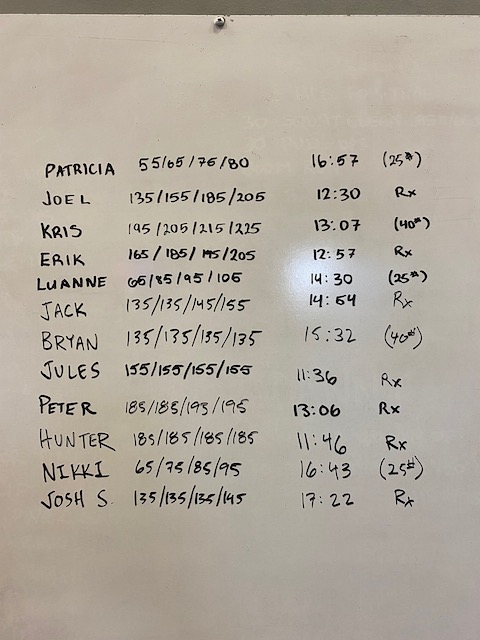 PATRICIA 55/65/75/80 16:57 (25#)
JOEL 135/155/185/205 12:30 Rx
KRIS 195/205/215/225 13:07 (40#)
ERIK 165/185/195/205 12:57 Rx
LUANNE 65/85/95/105 14:30 (25#)
JACK 135/135/145/155 14:54 Rx
BRYAN 135/135/135/135 15:32 (40#)
JULES 155/155/155/155 11:36 Rx
PETER 185/185/195/195 13:06 Rx
HUNTER 185/185/185/185 11:46 Rx
NIKKI 65/75/85/95 16:43 (25#)
JOSH S. 135/135/135/145 17:22 Rx